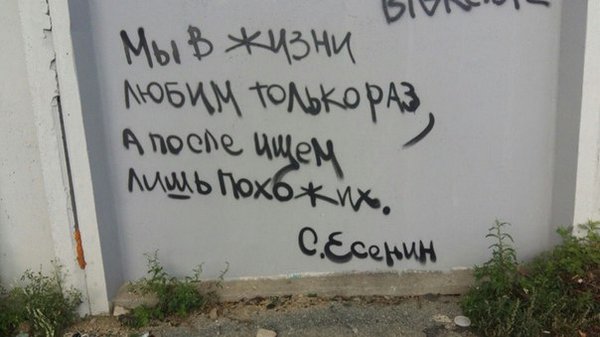 Мы в жизни
любим только раз,
А после ищем
лишь похожих.
С. Есенин